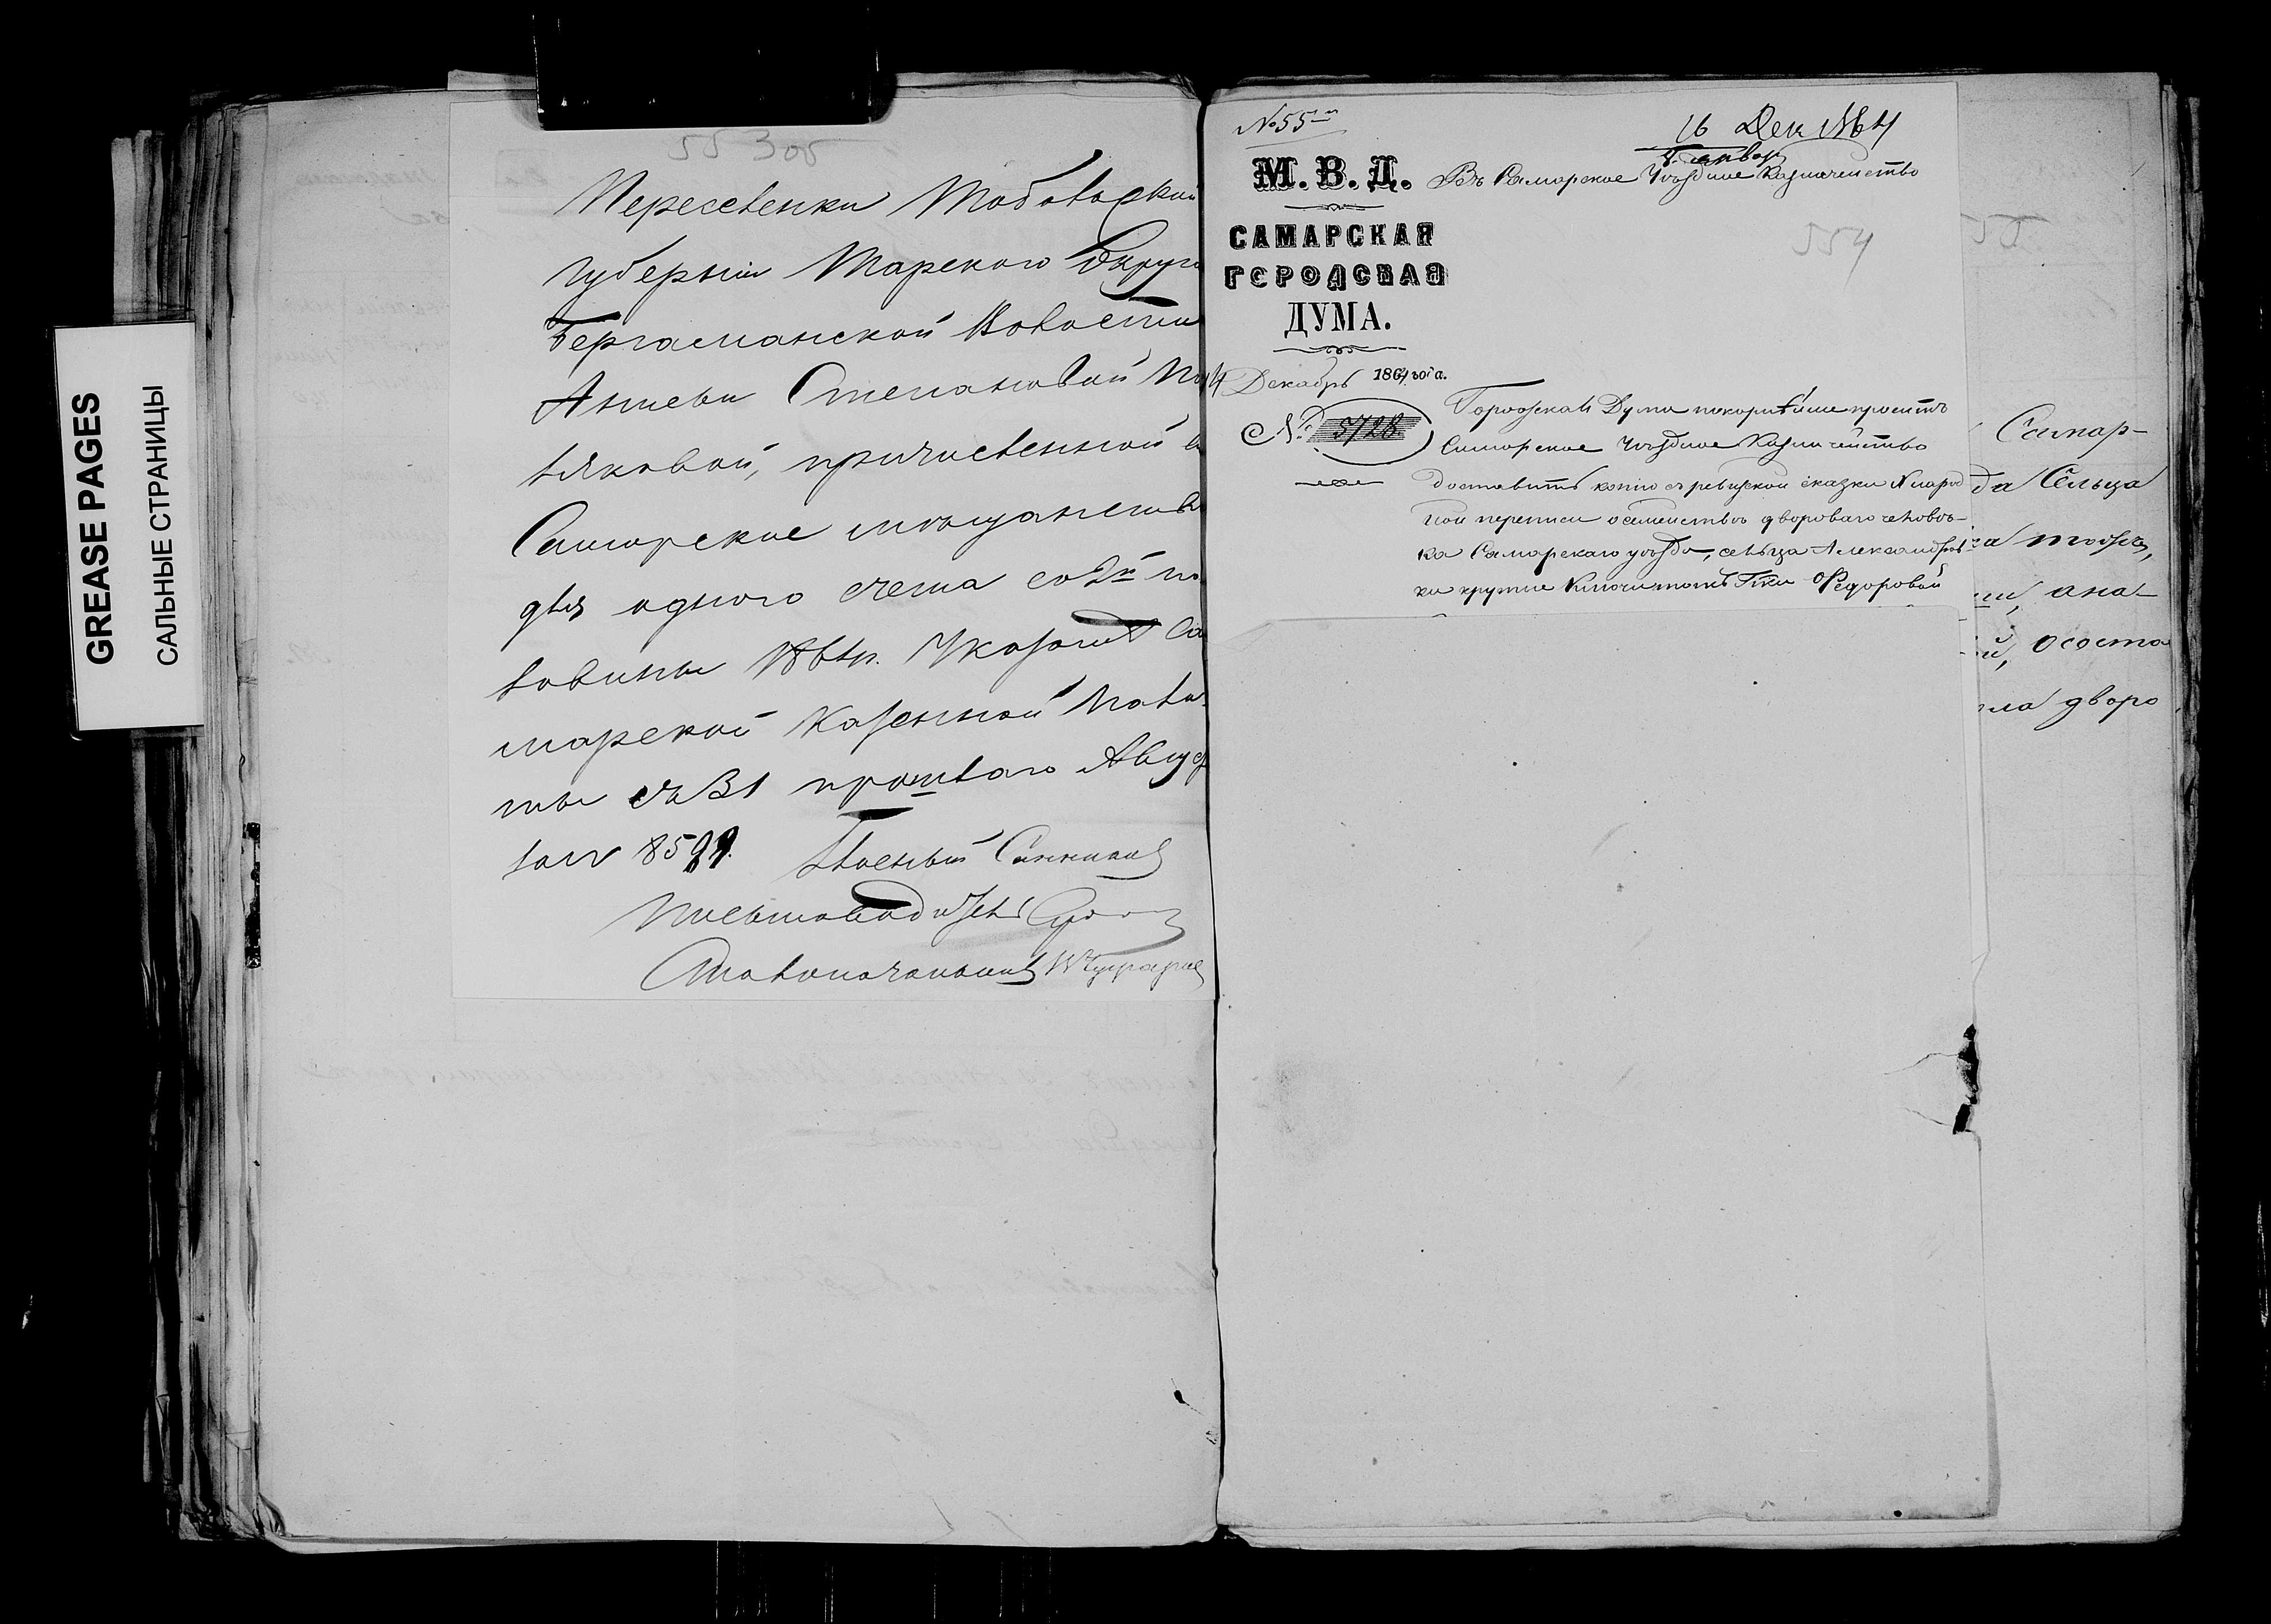 GREASE PAGES
САЛЬНЫЕ СТРАНИЦЫ
55 305
Переселенки Тобольской
губернiи Тарскаго Округа
Бергаманской Волости
Аннеы Степановой По
ляковой, причисленной въ
Самарское мѣщанство
для одного счета со 2й по
ловины 1864 г. Указомъ Са
марской Казенной Пала
ты отъ 31 прошлаго Авгус
за № 8599.
Гласный
Письмоводитель
Столоначальникъ
№ 55й
16 Дек 1864
М. В. Д.
Въ Самарское Уѣздное Казначейство
554
САМАРСКАЯ
ГОРОДСКАЯ
ДУМА.
14 Декабрь 1864 года.
№ 5728
Городская Дума покорнѣйше проситъ
Самарское Уѣздное Казначейство
доставить копiю съ ревизской сказки X народ
ной переписи о семействѣ двороваго человѣ-
ка Самарскаго уѣзда, сельца Александров
ки Г-жи Ѳедоровой
Самар-
да Сельца
ана-
й, о соста
дворо